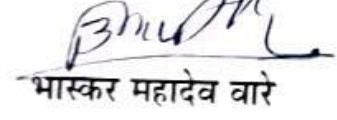 भास्कर महादेव वारे